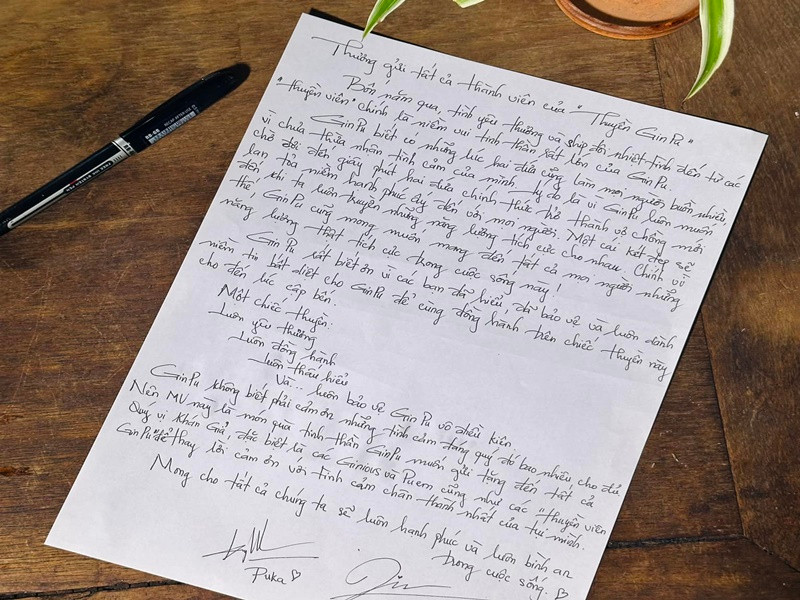 Thương gửi tất cả thành viên của "Thuyền GinPu"
Bốn năm qua, tình yêu thương và giúp đỡ nhiệt tình đến từ các
"thuyền viên" chính là niềm vui tinh thần rất lớn của GinPu.
GinPu biết có những lúc hai đứa cũng làm mọi người buồn nhiều
vì chưa thừa nhận tình cảm của mình. Lý do là vì GinPu luôn muốn
chờ đợi đến giây phút hai đứa chính thức trở thành vợ chồng mới
lan tỏa niềm hạnh phúc ấy đến với mọi người. Một cái kết đẹp sẽ
đến khi ta luôn truyền những năng lượng tích cực cho nhau. Chính vì
thế GinPu cũng mong muốn mang đến tất cả mọi người những
năng lượng thật tích cực trong cuộc sống này!
GinPu rất biết ơn vì các bạn đã hiểu, đã bảo vệ và luôn dành
niềm tin bất diệt cho GinPu để cùng đồng hành trên chiếc thuyền này
cho đến lúc cập bến.
Một chiếc thuyền:
Luôn yêu thương
Luôn đồng hành
Luôn thấu hiểu
Và... luôn bảo vệ GinPu vô điều kiện
GinPu không biết phải cảm ơn những tình cảm đáng quý đó bao nhiêu cho đủ
Nên MV này là món quà tinh thần GinPu muốn gửi tặng đến tất cả
Quý vị Khán Giả, đặc biệt là các Ginious và Puem cũng như các "thuyền viên
GinPu" để thay lời cảm ơn với tình cảm chân thành nhất của tụi mình.
Mong cho tất cả chúng ta sẽ luôn hạnh phúc và luôn bình an
trong cuộc sống.
Puka